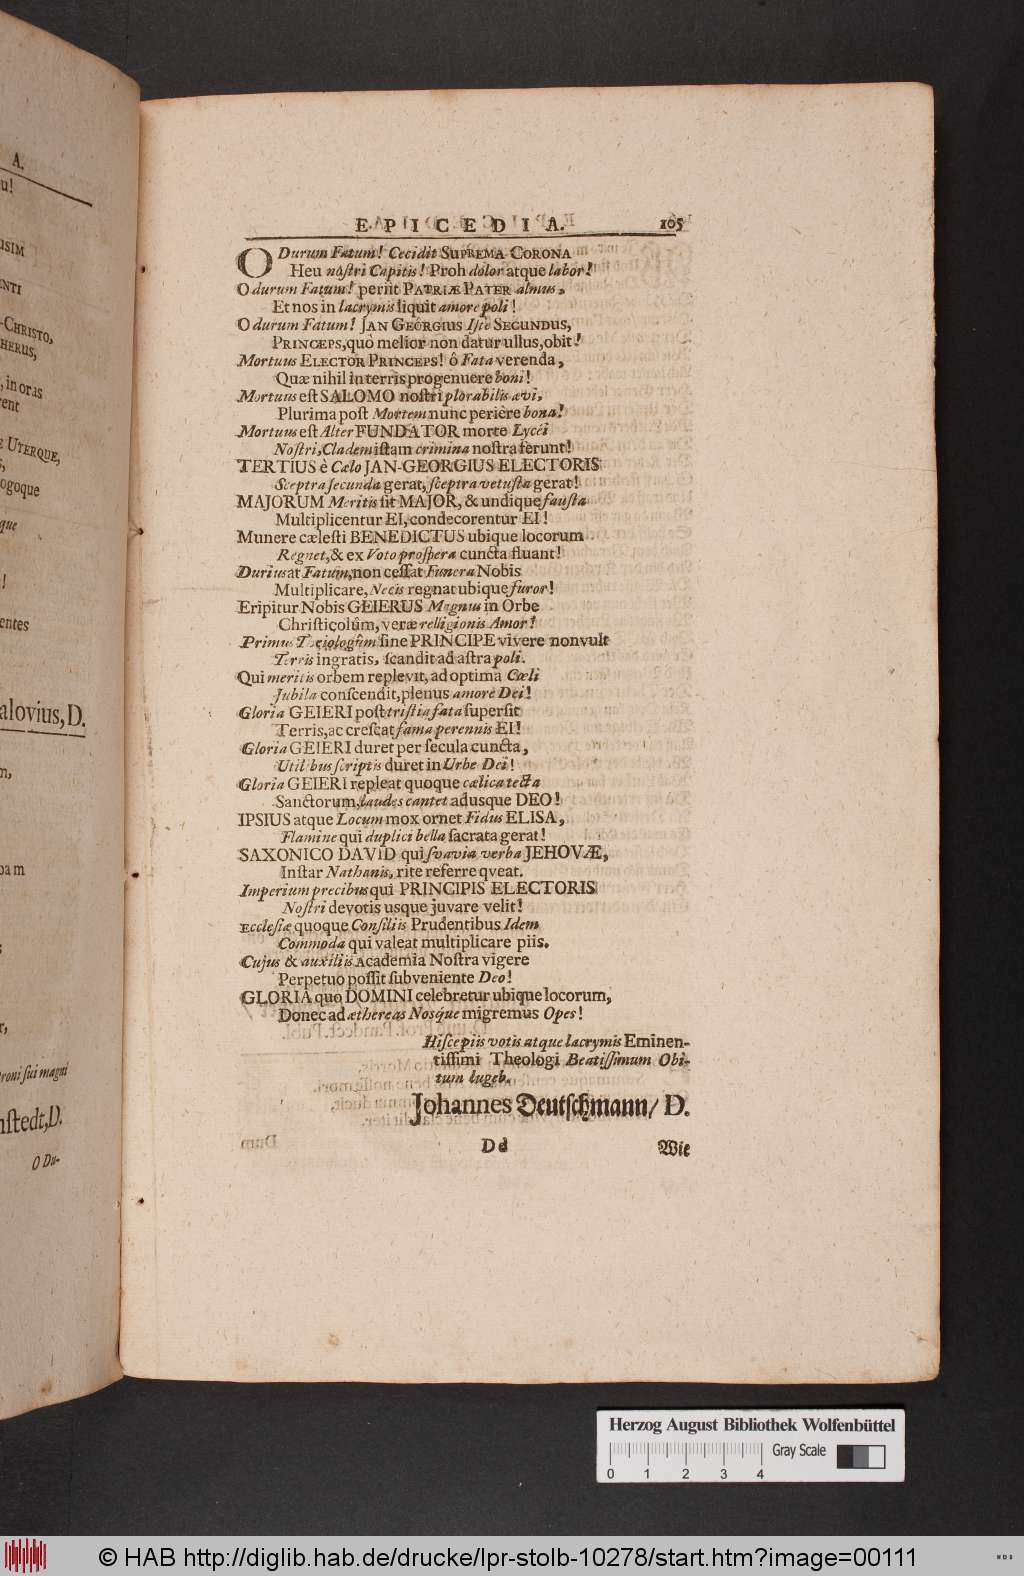 A.
u!
ISIM
ENTI
-CHRISTO,
HERUS,
, in oras
rent
E UTERQUE,
s,
ogoque
que
!
entes
alovius, D.
m,
pam
s
r,
roni sui magni
nstedt, D.
O Du-
EPICEDIA. 105
O Durum Fatum! Cecidit SUPREMA CORONA
Heu nostri Capitis! Proh dolor atque labor!
O durum Fatum! periit PATRIÆ PATER almus,
Et nos in lacrymis liquit amore poli!
O durum Fatum! JAN GEORGIUS Iste SECUNDUS,
PRINCEPS, quô melior non datur ullus, obit!
Mortuus ELECTOR PRINCEPS! ô Fata verenda,
Quæ nihil in terris progenuere boni!
Mortuus est SALOMO nostri plorabilis ævi,
Plurima post Mortem nunc perière bona!
Mortuus est Alter FUNDATOR morte Lycéi
Nostri, Cladem istam crimina nostra ferunt!
TERTIUS è Cœlo JAN-GEORGIUS ELECTORIS
Sceptra secunda gerat, sceptra vetusta gerat!
MAJORUM Meritis sit MAJOR, & undique fausta
Multiplicentur EI, condecorentur EI!
Munere cælesti BENEDICTUS ubique locorum
Regnet, & ex Voto prospera cuncta fluant!
Durius at Fatum, non cessat Funera Nobis
Multiplicare, Necis regnat ubique furor!
Eripitur Nobis GEIERUS Magnus in Orbe
Christicolûm, veræ relligionis Amor!
Primus Theologûm sine PRINCIPE vivere non vult
Terris ingratis, scandit ad astra poli.
Qui meritis orbem replevit, ad optima Cœli
Jubila conscendit, plenus amore Dei!
Gloria GEIERI post tristia fata supersit
Terris, ac crescat fama perennis EI!
Gloria GEIERI duret per secula cuncta,
Utilibus scriptis duret in Urbe Dei!
Gloria GEIERI repleat quoque cælica tecta
Sanctorum, laudes cantet adusque DEO!
IPSIUS atque Locum mox ornet Fidus ELISA,
Flamine qui duplici bella sacrata gerat!
SAXONICO DAVID qui svavia verba JEHOVÆ,
Instar Nathanis, rite referre qveat.
Imperium precibus qui PRINCIPIS ELECTORIS
Nostri devotis usque juvare velit!
ECclesiæ quoque Consiliis Prudentibus Idem
Commoda qui valeat multiplicare piis.
Cujus & auxiliis Academia Nostra vigere
Perpetuo possit subveniente Deo!
GLORIA quo DOMINI celebretur ubique locorum,
Donec ad æthereas Nosque migremus Opes!
Hisce piis votis atque lacrymis Eminen-
tissimi Theologi Beatissimum Obi-
tum lugeb.
Johannes Deutschmann/ D.
Dd Wie
Herzog August Bibliothek Wolfenbüttel
Gray Scale
0 1 2 3 4
© HAB http://diglib.hab.de/drucke/lpr-stolb-10278/start.htm?image=00111